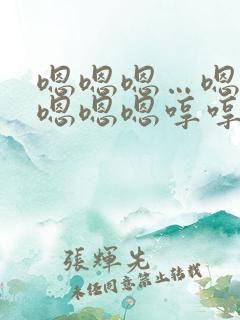 嗯嗯嗯…嗯
嗯嗯嗯哼哼
張輝先
未经同意禁止转载